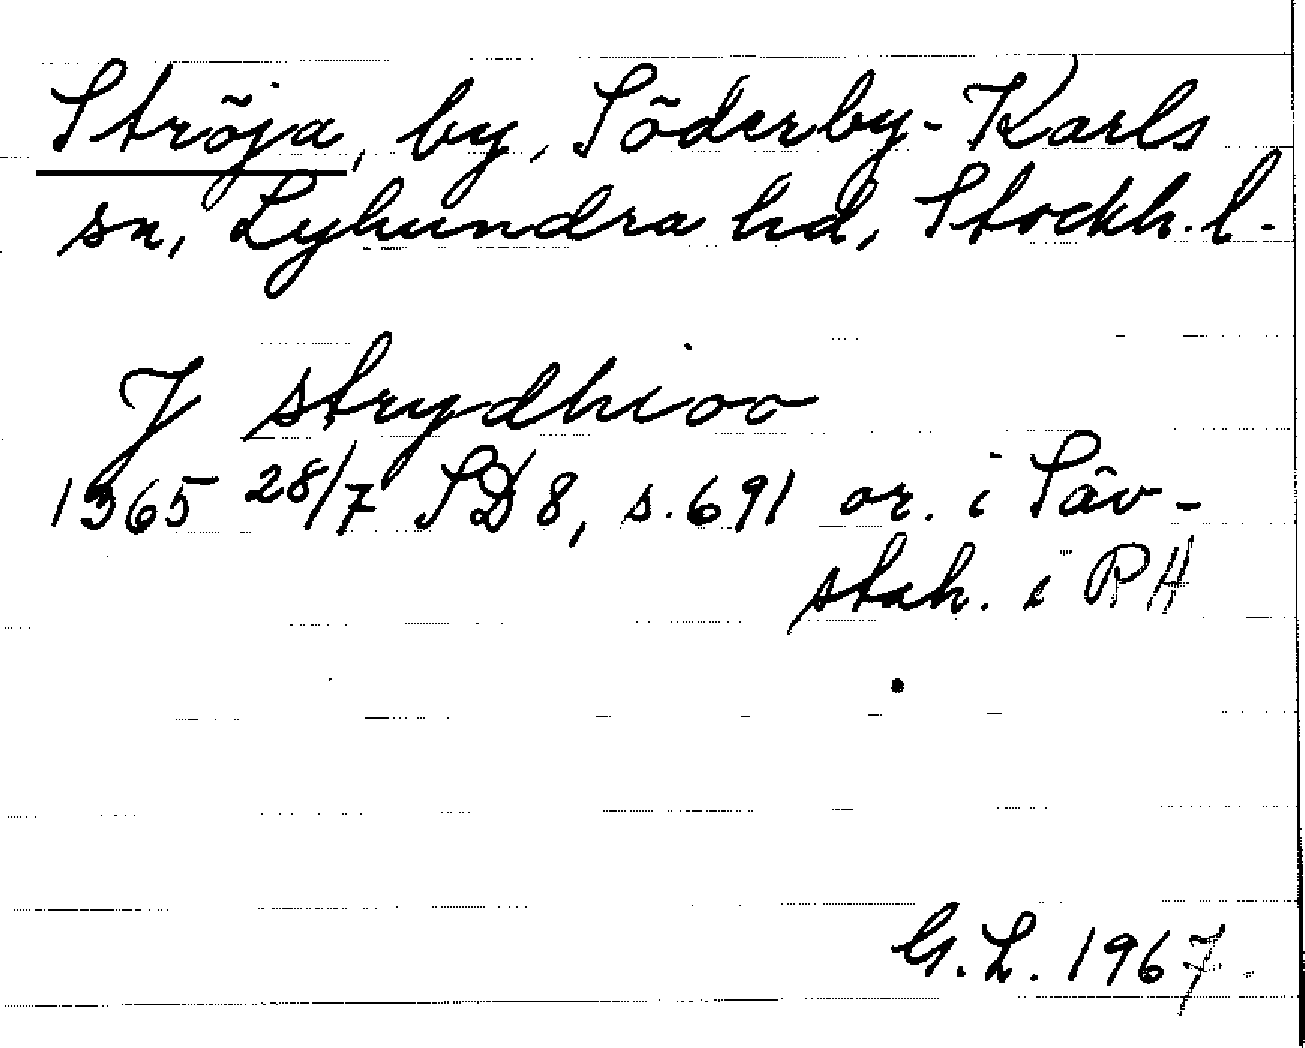 Ströja, by, Söderby-Karls
sn, Lyhundra hd, Stockh. l.
J strydhioo
1365 28/7 SD 8, s. 691 or. i Säv-
stah. i RH
G. L. 1967.